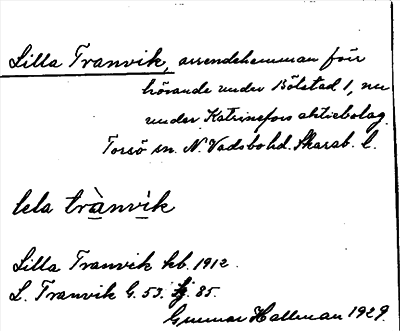 Lilla Tranvik, arrendehemman förr
hörande under Bölstad 1, nu
under Katrinefors aktiebolag.
Torsö sn. N. Vadsbo hd. Skarab. l.
lela trànvik
Lilla Tranvik kb. 1912.
L. Tranvik G. 53. lj. 85.
Gunnar Hallman 1929.